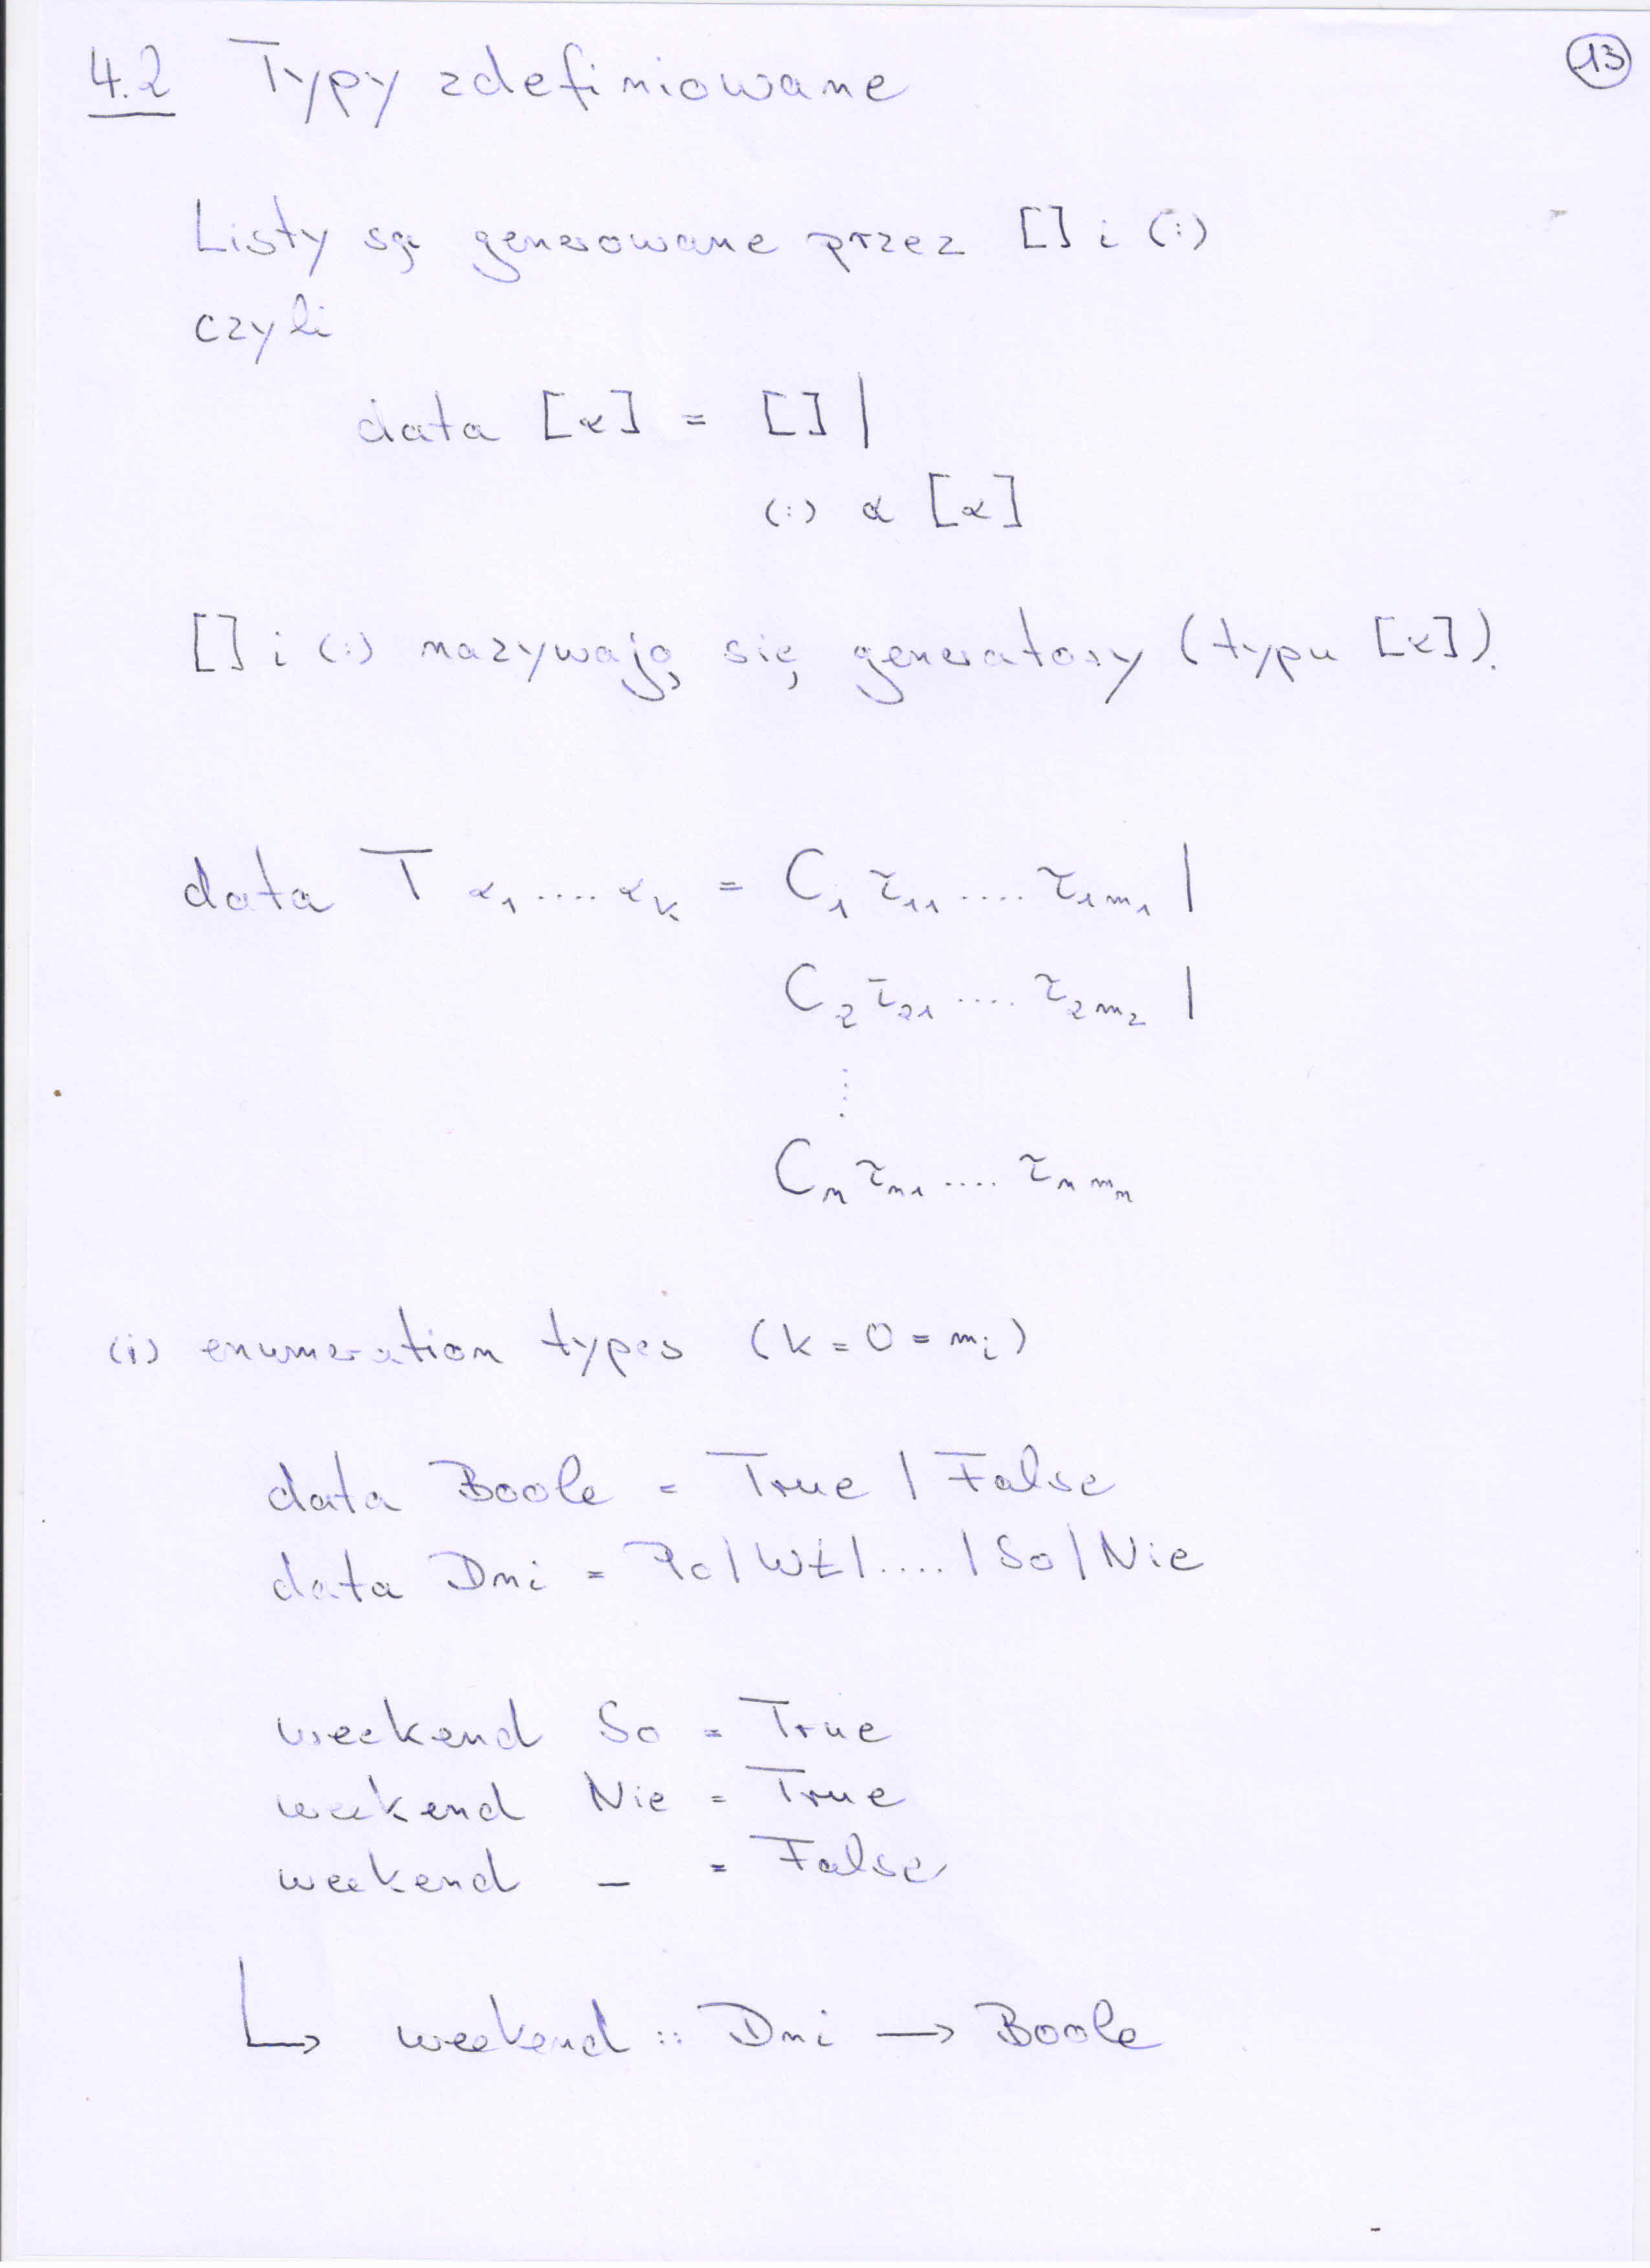 13
4.2 Typy zdefiniowane
Listy są generowane przez [] i (:)
czyli
data [α] = [] |
(:) α [α]
[] i (:) nazywają się generatory (typu [α]).
data T α₁ .... αₖ = C₁ τ₁₁ .... τ₁ₘ₁ |
C₂ τ₂₁ .... τ₂ₘ₂ |
⋮
Cₙ τₙ₁ .... τₙₘₙ
(i) enumeration types (k = 0 = mᵢ)
data Boole = True | False
data Dni = Po | Wt | .... | So | Nie
weekend So = True
weekend Nie = True
weekend _ = False
↳ weekend :: Dni → Boole